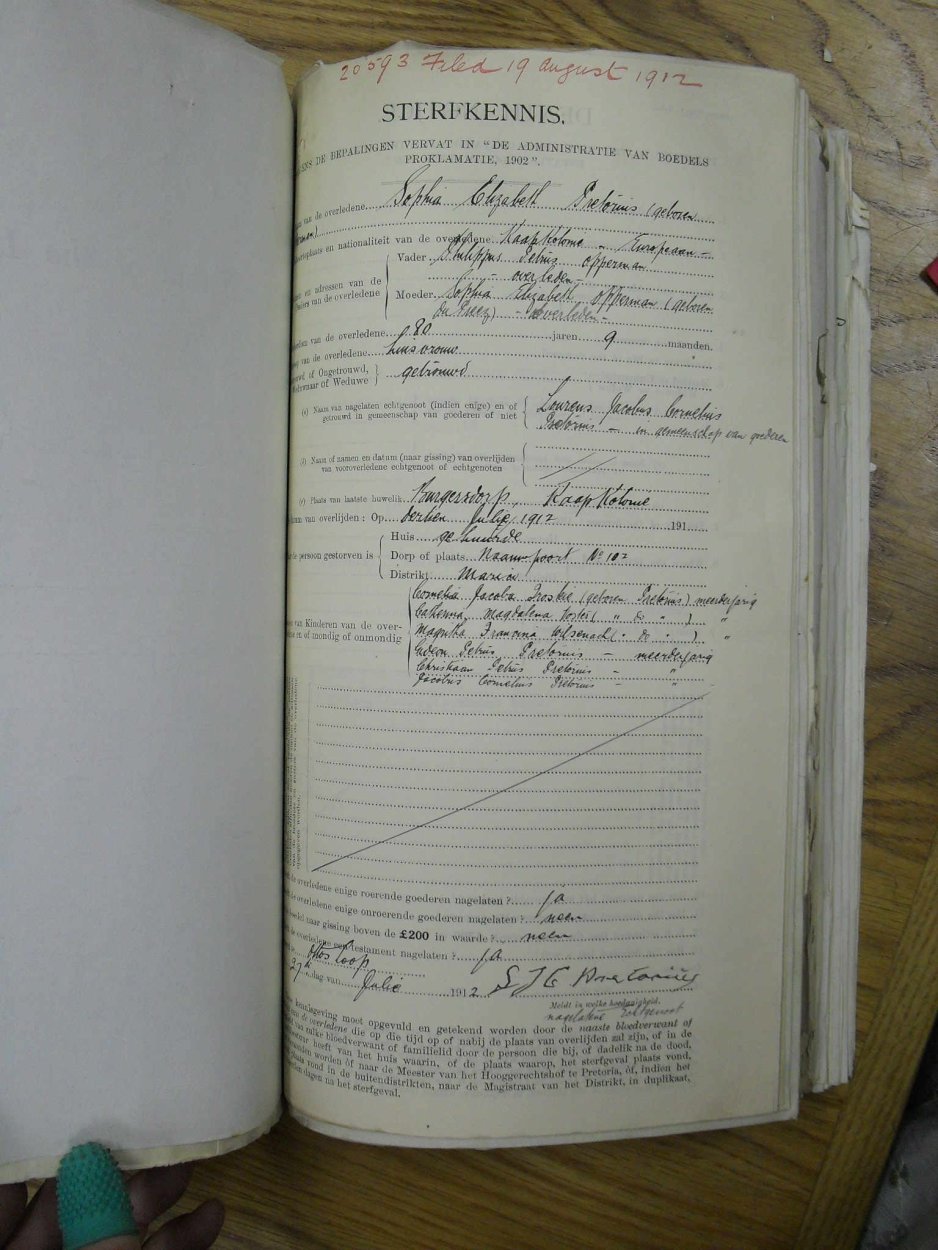 20593 Filed 19 August 1912
STERFKENNIS.
DE BEPALINGEN VERVAT IN "DE ADMINISTRATIE VAN BOEDELS
PROKLAMATIE, 1902".
van de overledene Sophia Elizabeth Pretorius (geboren
en nationaliteit van de overledene Kaap Kolonie " Europeaan -
Vader Philippus Petrus Opperman
- overleden -
en adressen van de
van de overledene
Moeder Sophia Elizabeth Opperman (geboren
du Preez) - overleden -
van de overledene 80 jaren 9 maanden.
van de overledene huisvrouw
of Ongetrouwd,
of Weduwe } getrouwd
Naam van nagelaten echtgenoot (indien enige) en of
getrouwd in gemeenschap van goederen of niet
Lourens Jacobus Cornelius
Pretorius - in gemeenschap van goederen
Naam of namen en datum (naar gissing) van overlijden
van vooroverledene echtgenoot of echtgenoten
(c) Plaats van laatste huwelik Burgersdorp, Kaap Kolonie
van overlijden : Op dertien Julie 1912 191
Huis gehuurde
persoon gestorven is
Dorp of plaats Naauwpoort No 102
Distrikt Marico
Cornelia Jacoba (geboren Pretorius) meerderjarig
Catherina Magdalena Vorster ( " do " ) "
Francina ( " do " ) "
van Kinderen van de over-
en of mondig of onmondig
Gideon Petrus Pretorius - meerderjarig
Christiaan Petrus Pretorius - "
Jacobus Cornelius Pretorius - "
de overledene enige roerende goederen nagelaten ? ja
de overledene enige onroerende goederen nagelaten ? neen
naar gissing boven de £200 in waarde ? neen
de overledene een testament nagelaten ? ja
Ottos Loop
27ste dag van Julie 1912
Meldt in welke hoedanigheid.
nagelatene Echtgenoot
kennisgeving moet opgevuld en getekend worden door de naaste bloedverwant of
de overledene die op die tijd op of nabij de plaats van overlijden zal zijn, of in de
van zulke bloedverwant of familielid door de persoon die bij, of dadelik na de dood,
heeft van het huis waarin, of de plaats waarop, het sterfgeval plaats vond,
worden òf naar de Meester van het Hooggerechtshof te Pretoria, òf, indien het
vond in de buitendistrikten, naar de Magistraat van het Distrikt, in duplikaat,
dagen na het sterfgeval.